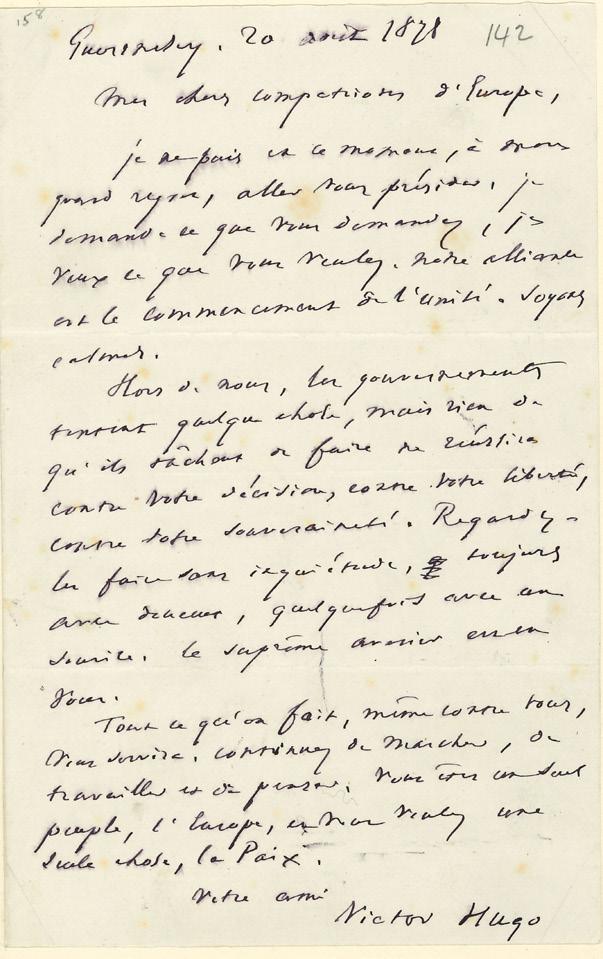 158
142
Guernesey. 20 août 1878
Mes chers compatriotes d'Europe,
je ne puis en ce moment, à mon
grand regret, aller vous présider. je
demande ce que vous demandez, je
veux ce que vous voulez. notre alliance
est le commencement de l'unité. Soyons
calmes.
Hors de nous, les gouvernements
tentent quelque chose, mais rien de
qu'ils tâchent de faire ne réussira
contre votre décision, contre votre liberté,
contre votre souveraineté. Regardez-
les faire sans inquiétude, toujours
avec douceur, quelquefois avec un
sourire. le suprême avenir est en
vous.
Tout ce qu'on fait, même contre vous,
vous servira. continuez de marcher, de
travailler et de penser. Vous êtes un seul
peuple, l'Europe, et vous voulez une
seule chose, la Paix.
Votre ami
Victor Hugo